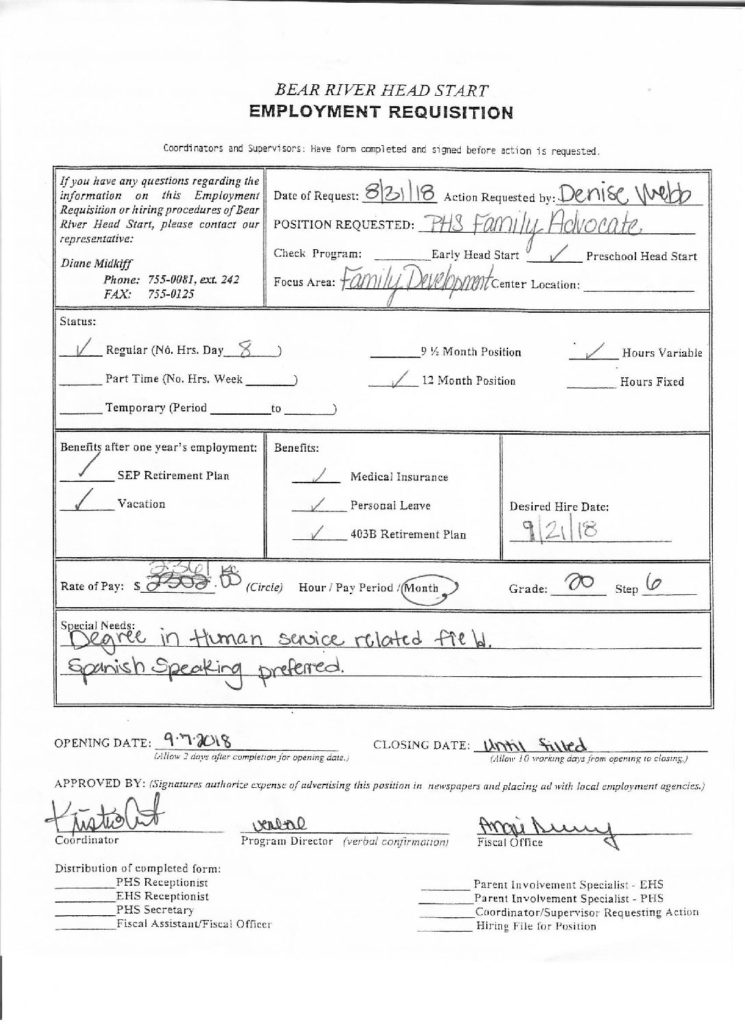 BEAR RIVER HEAD START
EMPLOYMENT REQUISITION
Coordinators and Supervisors: Have form completed and signed before action is requested.
If you have any questions regarding the
information on this Employment
Requisition or hiring procedures of Bear
River Head Start, please contact our
representative:
Diane Midkiff
Phone: 755-0081, ext. 242
FAX: 755-0125
Date of Request: 8/31/18 Action Requested by: Denise Webb
POSITION REQUESTED: PHS Family Advocate
Check Program: ________ Early Head Start ✓ Preschool Head Start
Focus Area: Family Development Center Location: ________
Status:
✓ Regular (No. Hrs. Day 8 ) ________ 9 ½ Month Position ✓ Hours Variable
________ Part Time (No. Hrs. Week ________) ✓ 12 Month Position ________ Hours Fixed
________ Temporary (Period ________ to ________)
Benefits after one year's employment:
✓ SEP Retirement Plan
✓ Vacation
Benefits:
✓ Medical Insurance
✓ Personal Leave
✓ 403B Retirement Plan
Desired Hire Date:
9/21/18
Rate of Pay: $ (Circle) Hour / Pay Period / Month Grade: 20 Step 6
Special Needs:
Degree in Human service related field.
Spanish Speaking preferred.
OPENING DATE: 9-7-2018 CLOSING DATE: Until filled
(Allow 2 days after completion for opening date.) (Allow 10 working days from opening to closing.)
APPROVED BY: (Signatures authorize expense of advertising this position in newspapers and placing ad with local employment agencies.)
verbal
Coordinator Program Director (verbal confirmation) Fiscal Office
Distribution of completed form:
________ PHS Receptionist
________ EHS Receptionist
________ PHS Secretary
________ Fiscal Assistant/Fiscal Officer
________ Parent Involvement Specialist - EHS
________ Parent Involvement Specialist - PHS
________ Coordinator/Supervisor Requesting Action
________ Hiring File for Position